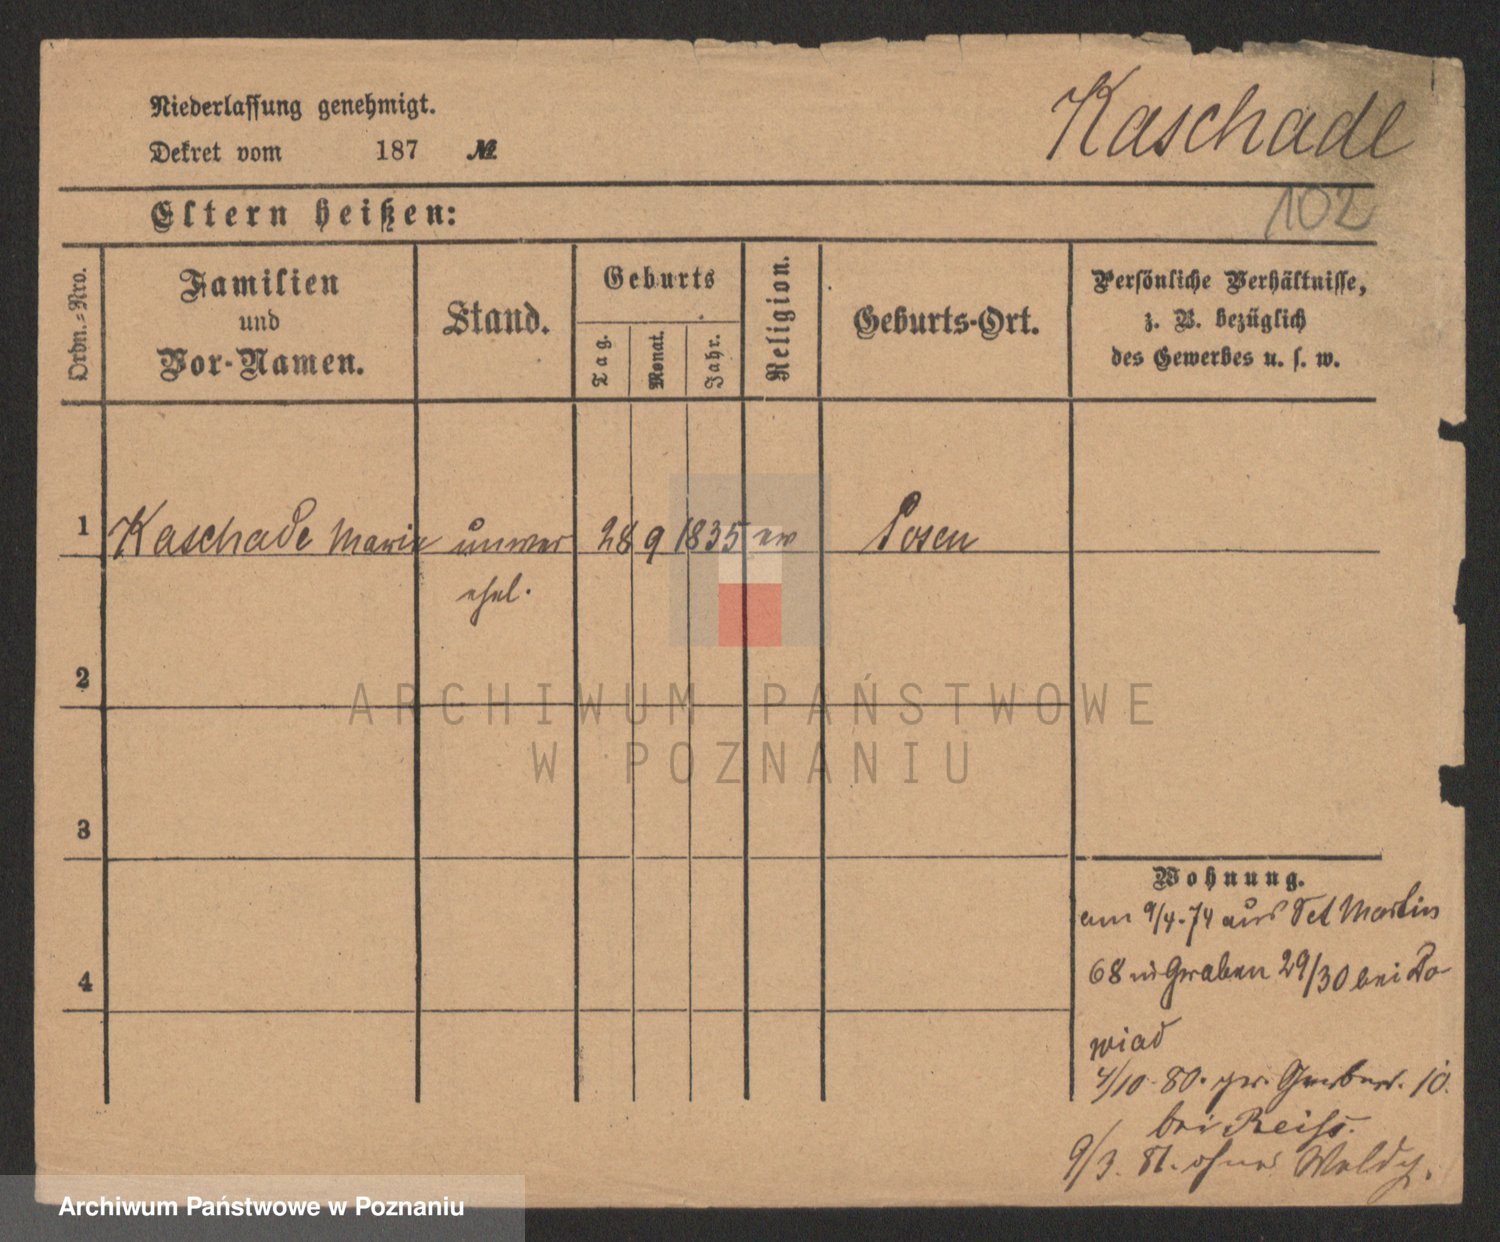 Niederlassung genehmigt.
Dekret vom 187 №
Kaschade
102
Eltern heißen:
Ordn.-Nro.
Familien
und
Vor-Namen.
Stand.
Geburts
Tag.
Monat.
Jahr.
Religion.
Geburts-Ort.
Persönliche Verhältnisse,
z. B. bezüglich
des Gewerbes u. s. w.
1 Kaschade Marie unver 28 9 1835 ev Posen
ehel.
2
ARCHIWUM PAŃSTWOWE
W POZNANIU
3
4
Wohnung.
am 9/4.74 aus Sct Martin
68 in Graben 29/30 bei
4/10 80. gr. Gerberst. 10.
bei Reiss.
9/3. 81. ohne
Archiwum Państwowe w Poznaniu